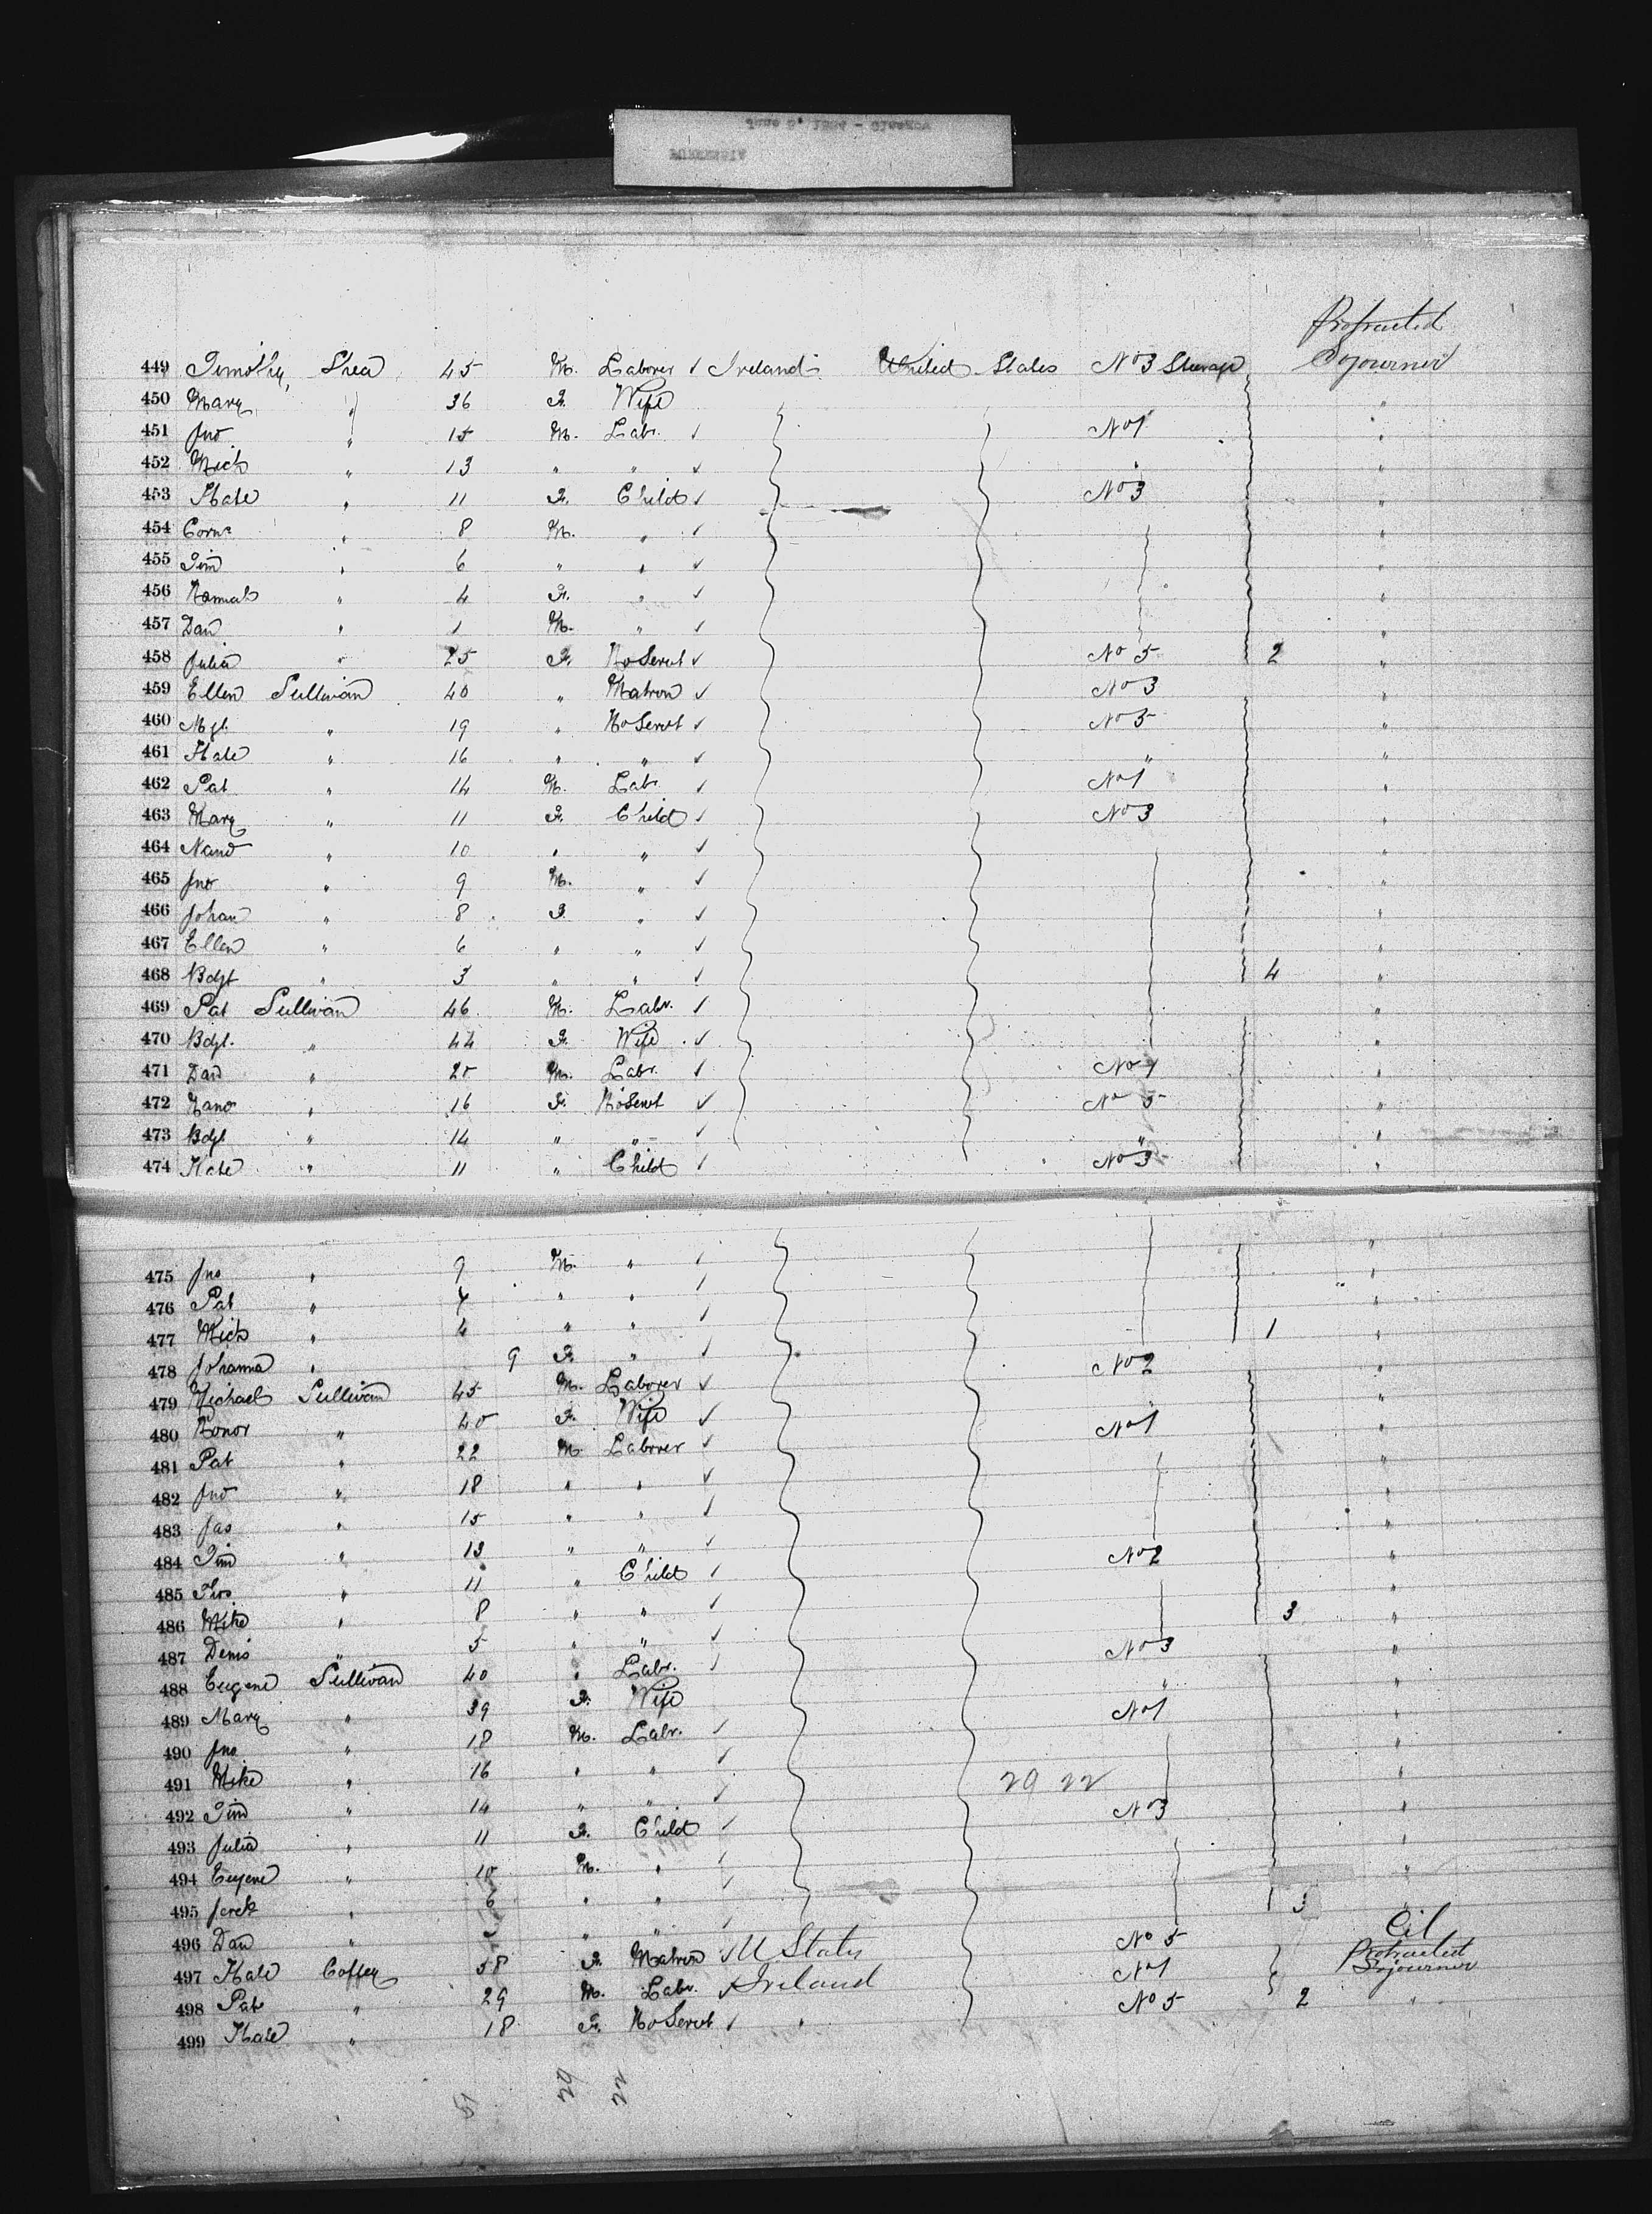 449 Timothy Shea 45 M. Laborer ✓ Ireland United States No 3 Steerage Protracted Sojourner
450 Mary " 36 F. Wife "
451 Jno " 15 M. Labr. ✓ No 1 "
452 Mich " 13 " " ✓ " "
453 Kate " 11 F. Child ✓ No 3 "
454 Corns " 8 M. " ✓ "
455 Tim " 6 " " ✓ "
456 Hannah " 4 F. " ✓ "
457 Dan " 1 M. " ✓ "
458 Julia " 25 F. Ho Servt ✓ No 5 2 "
459 Ellen Sullivan 40 " Matron ✓ No 3 "
460 Mgt. " 19 " Ho Servt ✓ No 5 "
461 Kate " 16 " " ✓ " "
462 Pat " 14 M. Labr. ✓ No 1 "
463 Mary " 11 F. Child ✓ No 3 "
464 Nano " 10 " " ✓ "
465 Jno " 9 M. " ✓ "
466 Johan " 8 F. " ✓ "
467 Ellen " 6 " " ✓ "
468 Bdgt " 3 " " ✓ 4 "
469 Pat Sullivan 46 M. Labr. ✓ "
470 Bdgt. " 44 F. Wife ✓ "
471 Dan " 20 M. Labr. ✓ No 1 "
472 " 16 F. Ho Servt ✓ No 5 "
473 Bdgt " 14 " " ✓ " "
474 Kate " 11 " Child ✓ No 3 "
475 Jno " 9 M. " ✓ "
476 Pat " 7 " " ✓ "
477 Mich " 4 " " ✓ 1 "
478 Johanna " 9 F. " ✓ "
479 Michael Sullivan 45 M. Laborer ✓ No 2 "
480 Honor " 40 F. Wife ✓ "
481 Pat " 22 M. Laborer ✓ No 1 "
482 Jno " 18 " " ✓ "
483 Jas " 15 " " ✓ "
484 Tim " 13 " " ✓ "
485 Thos. " 11 " Child ✓ No 2 "
486 Mike " 8 " " ✓ "
487 Denis " 5 " " ✓ 3 "
488 Eugene Sullivan 40 " Labr. ✓ No 3 "
489 Mary " 39 F. Wife " "
490 Jno " 18 M. Labr. ✓ No 1 "
491 Mike " 16 " " ✓ "
29 22
492 Tim " 14 " " ✓ "
493 Julia " 11 F. Child ✓ No 3 "
494 Eugene " 10 M. " ✓ "
495 " 6 " " ✓ "
496 Dan " " " ✓ 3
497 Kate Coffey 58 F. Matron ✓ U States No 5 Cit
498 Pat " 29 M. Labr. ✓ Ireland No 1 Protracted Sojourner
499 Kate " 18 F. Ho Servt ✓ " No 5 2 "
51 29 22